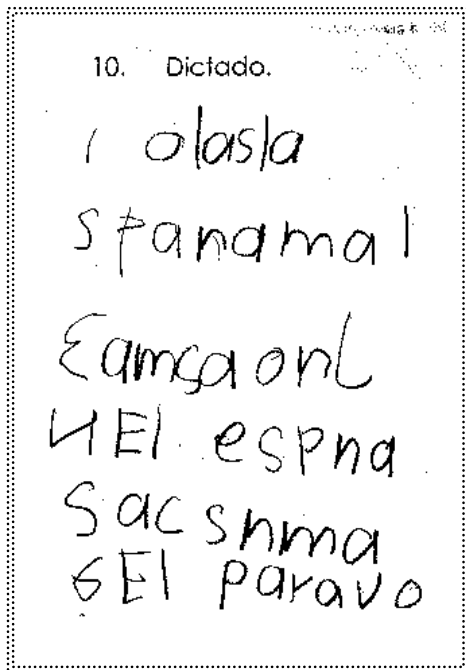 10. Dictado.
1 olasla
S tanamal
3 amsa onl
4 El espna
5 ac snma
6 El paravo